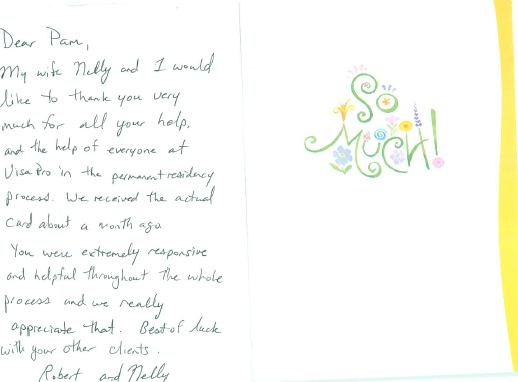 Dear Pam,
My wife Nelly and I would
like to thank you very
much for all your help,
and the help of everyone at
VisaPro in the permanent residency
process. We received the actual
card about a month ago
You were extremely responsive
and helpful throughout the whole
process and we really
appreciate that. Best of luck
with your other clients.
Robert and Nelly
So
Much!